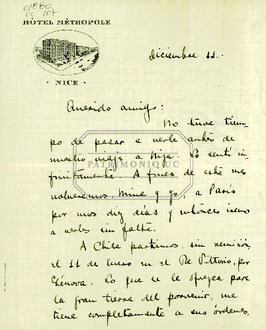 HÔTEL MÉTROPOLE
NICE
diciembre 11.
Querido amigo:
No tuve tiem-
po de pasar a verle antes de
nuestro viaje a Niza. Lo sentí in-
finitamente. A fines de este mes
volveremos, Mina y yo, a París
por unos diez días y entonces iremos
a verles sin falta.
A Chile partimos, sin remisión,
el 11 de enero en el Pe
por
Génova. Lo que se le ofrezca para
la gran tierra del porvenir, me
tiene completamente a sus órdenes.
PATRIMONIO UC